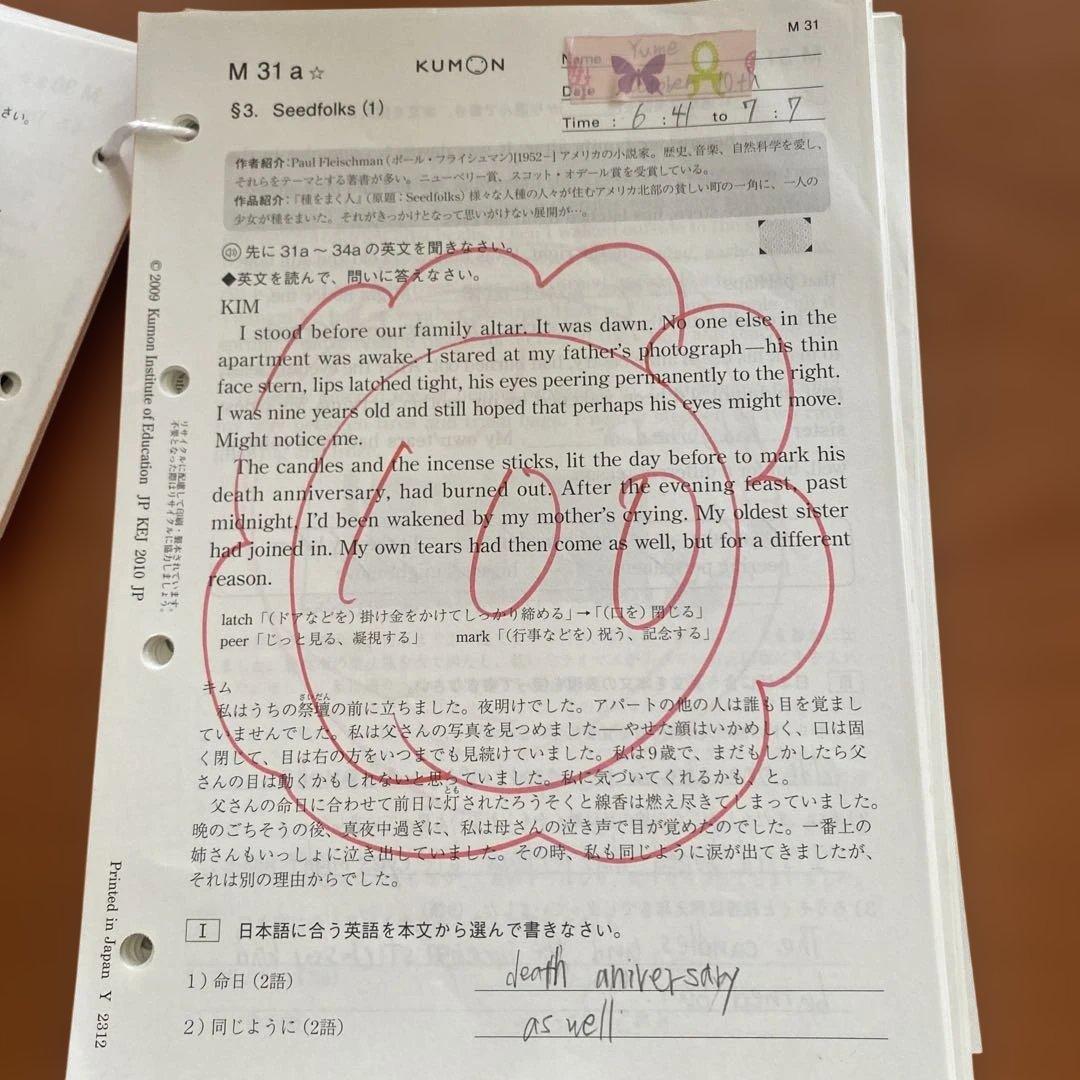 さい。
M 31
M 31 a☆
KUMON
Name Yume
Date
Time : 6 : 41 to 7 : 7
§3. Seedfolks (1)
作者紹介:Paul Fleischman(ポール・フライシュマン)[1952-]アメリカの小説家。歴史、音楽、自然科学を愛し、
それらをテーマとする著書が多い。ニューベリー賞、スコット・オデール賞を受賞している。
作品紹介:『種をまく人』(原題:Seedfolks)様々な人種の人々が住むアメリカ北部の貧しい町の一角に、一人の
少女が種をまいた。それがきっかけとなって思いがけない展開が…。
先に 31a~34a の英文を聞きなさい。
◆英文を読んで、問いに答えなさい。
KIM
I stood before our family altar. It was dawn. No one else in the
apartment was awake. I stared at my father's photograph—his thin
face stern, lips latched tight, his eyes peering permanently to the right.
I was nine years old and still hoped that perhaps his eyes might move.
Might notice me.
The candles and the incense sticks, lit the day before to mark his
death anniversary, had burned out. After the evening feast, past
midnight, I'd been wakened by my mother's crying. My oldest sister
had joined in. My own tears had then come as well, but for a different
reason.
100
latch「(ドアなどを)掛け金をかけてしっかり締める」→「(口を)閉じる」
peer「じっと見る、凝視する」 mark「(行事などを)祝う、記念する」
キム
私はうちの祭壇の前に立ちました。夜明けでした。アパートの他の人は誰も目を覚まし
ていませんでした。私は父さんの写真を見つめました——やせた顔はいかめしく、口は固
く閉じて、目は右の方をいつまでも見続けていました。私は9歳で、まだもしかしたら父
さんの目は動くかもしれないと思っていました。私に気づいてくれるかも、と。
父さんの命日に合わせて前日に灯されたろうそくと線香は燃え尽きてしまっていました。
晩のごちそうの後、真夜中過ぎに、私は母さんの泣き声で目が覚めたのでした。一番上の
姉さんもいっしょに泣き出していました。その時、私も同じように涙が出てきましたが、
それは別の理由からでした。
I 日本語に合う英語を本文から選んで書きなさい。
1)命日(2語) death aniversary
2)同じように(2語) as well
© 2009 Kumon Institute of Education JP KEJ 2010 JP
リサイクルに配慮して印刷・製本されています。
不要となった際はリサイクルに協力しましょう。
Printed in Japan Y 2312